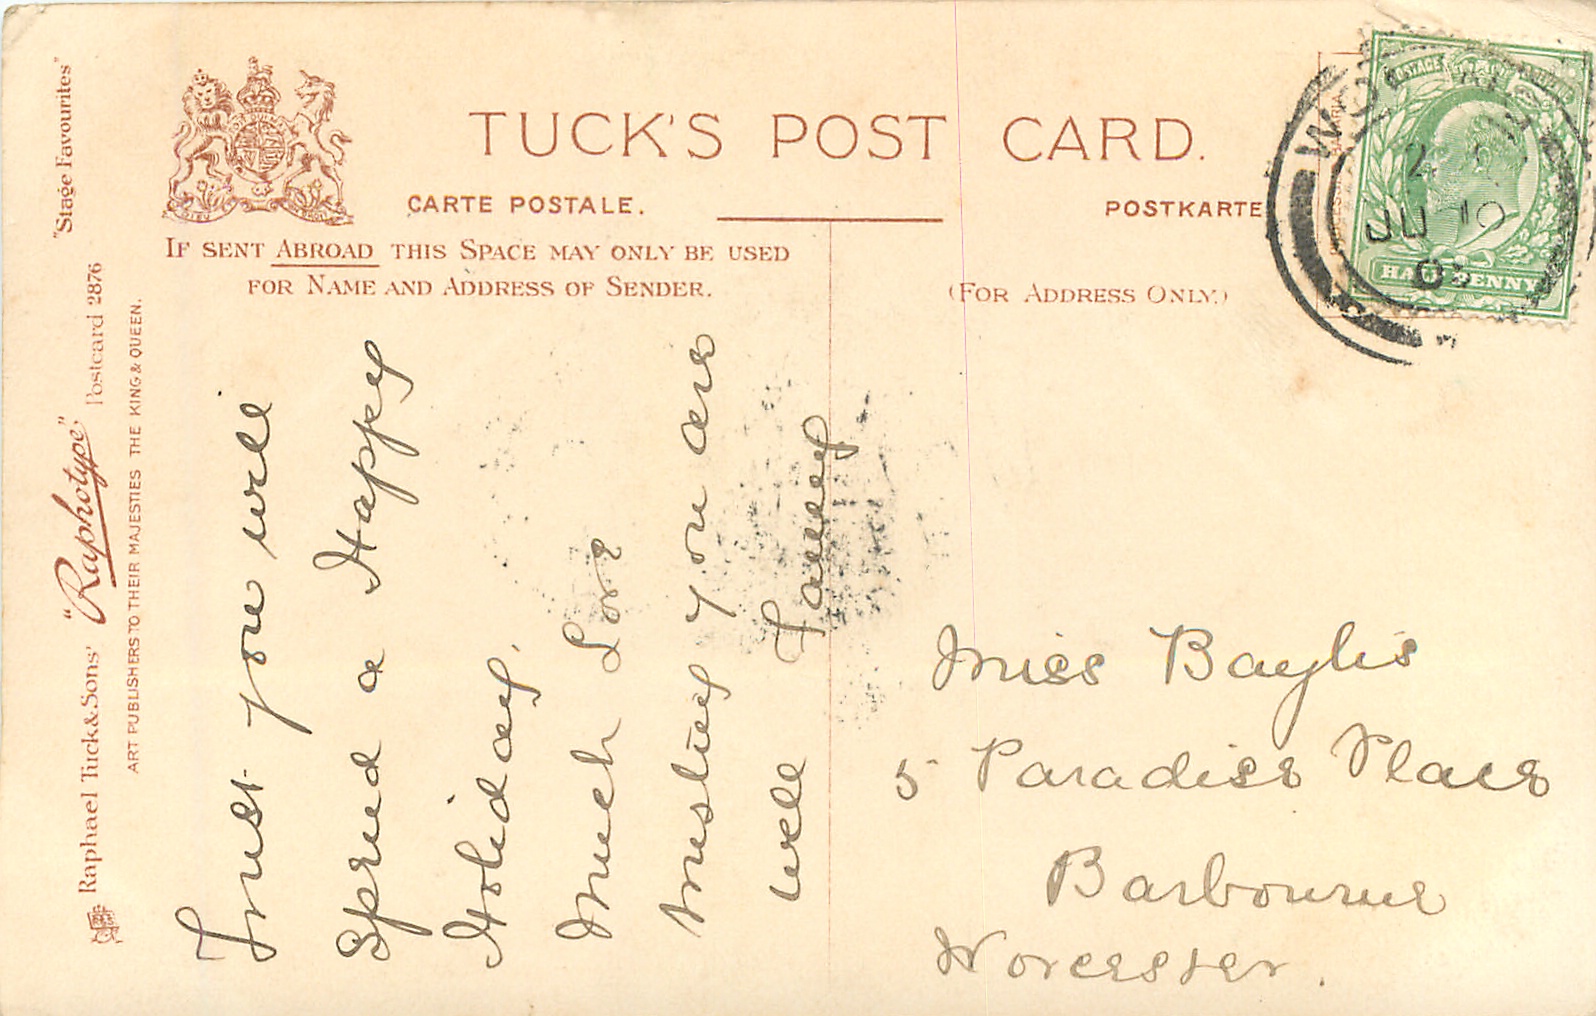 TUCK'S POST CARD.
CARTE POSTALE.
POSTKARTE
IF SENT ABROAD THIS SPACE MAY ONLY BE USED
FOR NAME AND ADDRESS OF SENDER.
(FOR ADDRESS ONLY.)
"Stage Favourites"
Raphael Tuck & Sons' "Raphotype" Postcard 2876
ART PUBLISHERS TO THEIR MAJESTIES THE KING & QUEEN.
POSTAGE
HALFPENNY
JU 10
Trust you will
Spend a Happy
Holiday.
Much Love
trusting you are
well
Miss Baylis
5 Paradise Place
Barbourne
Worcester.